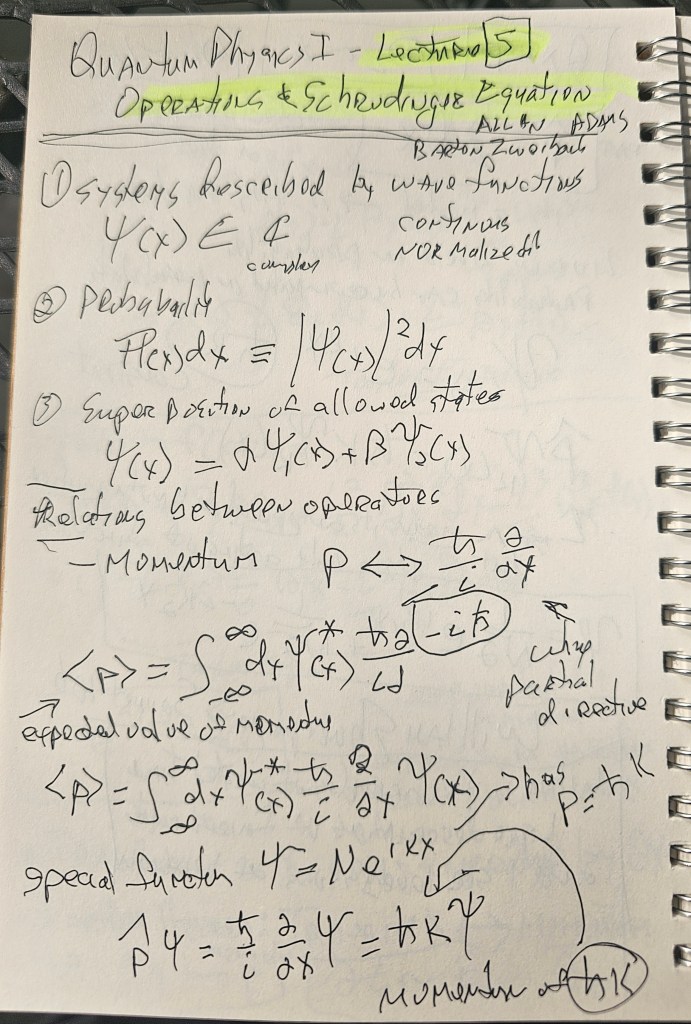 QUANTUM PHYSICS I - LECTURE 5
OPERATORS & Schrodinger Equation
ALLAN ADAMS
BARTON Zwiebach
① Systems Described by wave functions
Ψ(x) ∈ ℂ
complex
CONTINOUS
NORMalized
② Probability
P(x)dx ≡ |Ψ(x)|²dx
③ Superposition of allowed states
Ψ(x) = αΨ₁(x) + βΨ₂(x)
Relations between operators
- Momentum P ↔ ħ/i ∂/∂x
-iħ
<p> = ∫_{-∞}^{∞} dx Ψ*(x) ħ∂/i∂
why partial directive
expected value of momentum
<p> = ∫_{-∞}^{∞} dx Ψ*(x) ħ/i ∂/∂x Ψ(x) → has p=ħK
special function Ψ = Ne^{ikx}
p̂Ψ = ħ/i ∂/∂x Ψ = ħKΨ
momentum of ħK